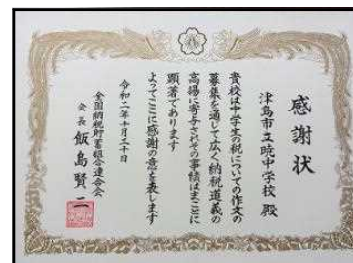 感謝状
津島市立暁中学校 殿
貴校は中学生の税についての作文の
募集を通して広く納税道義の
高揚に寄与されその事績はまことに
顕著であります
よってここに感謝の意を表します
令和二年十月三十日
全国納税貯蓄組合連合会
会長 飯島賢二